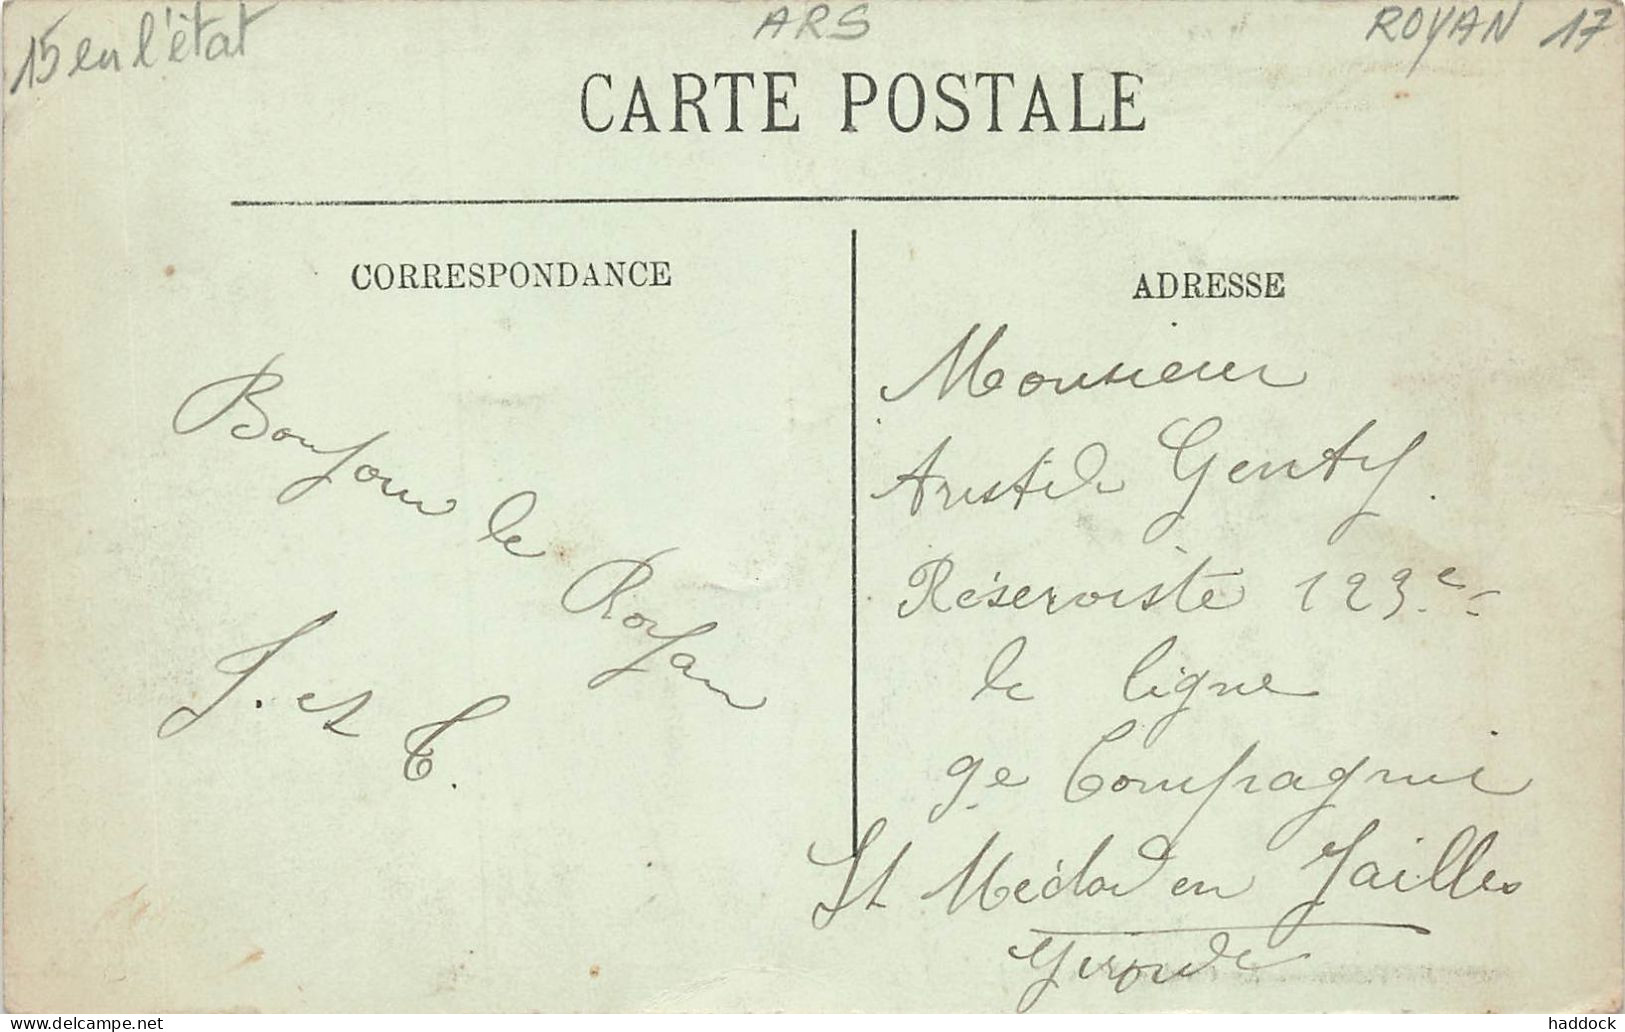 15 en l'état
ARS
ROYAN 17
CARTE POSTALE
CORRESPONDANCE
Bonjour de Royan
J. et C.
ADRESSE
Monsieur
Aristide Genty.
Réserviste 123e
de ligne
9e Compagnie
St Médard en Jailles
Gironde
Delcampe.net
haddock